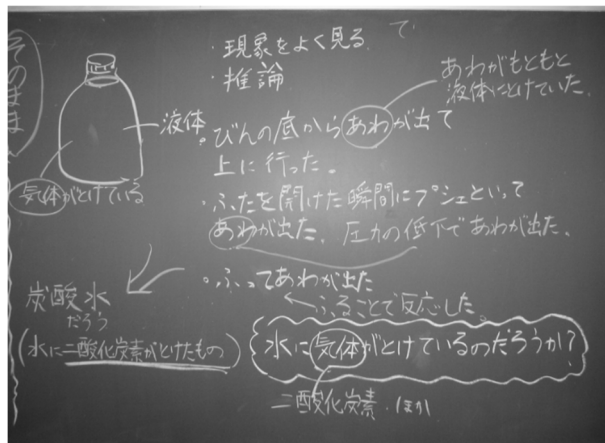 そのまま
・現象をよく見る
・推論
て
あわがもともと
液体にとけていた。
液体
気体がとけている
・びんの底からあわが出て
上に行った。
・ふたを開けた瞬間にプシュといって
あわが出た。圧力の低下であわが出た。
・ふってあわが出た
ふることで反応した。
炭酸水
だろう
(水に二酸化炭素がとけたもの)
水に気体がとけているのだろうか?
二酸化炭素・ほか